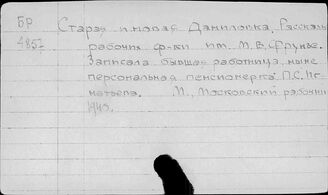 БР
4857
Старая и новая Даниловка. Рассказы
рабочих ф-ки им. М.В. Фрунзе.
Записала бывшая работница, ныне
персональная пенсионерка П.С. Иг-
натьева. М., Московский рабочий
1940.